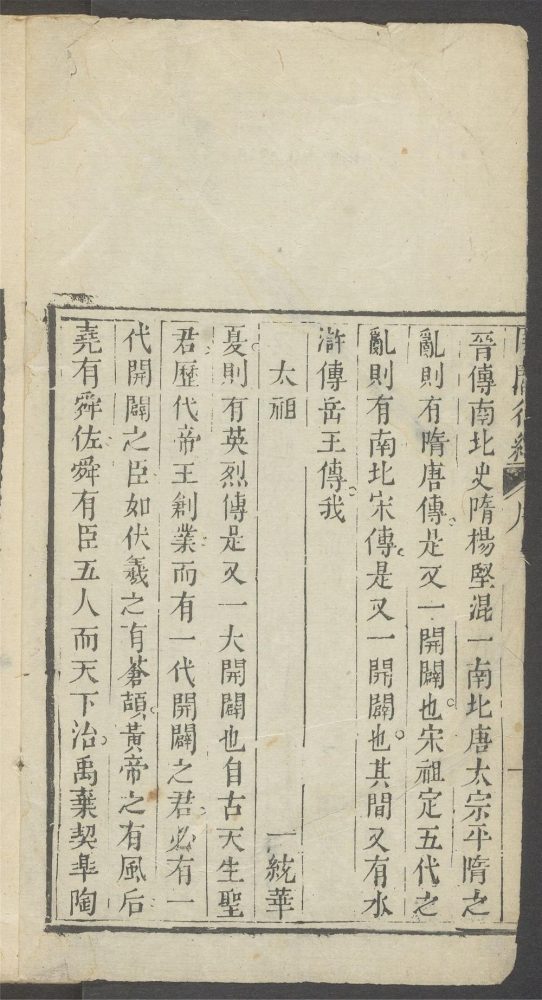 晉傳南北史隋楊堅混一南北唐太宗平隋之
亂則有隋唐傳是又一開闢也宋祖定五代之
亂則有南北宋傳是又一開闢也其間又有水
滸傳岳王傳我
太祖 一統華
夏則有英烈傳是又一大開闢也自古天生聖
君歷代帝王創業而有一代開闢之君必有一
代開闢之臣如伏羲之有蒼頡黃帝之有風后
堯有舜佐舜有臣五人而天下治禹棄契皋陶